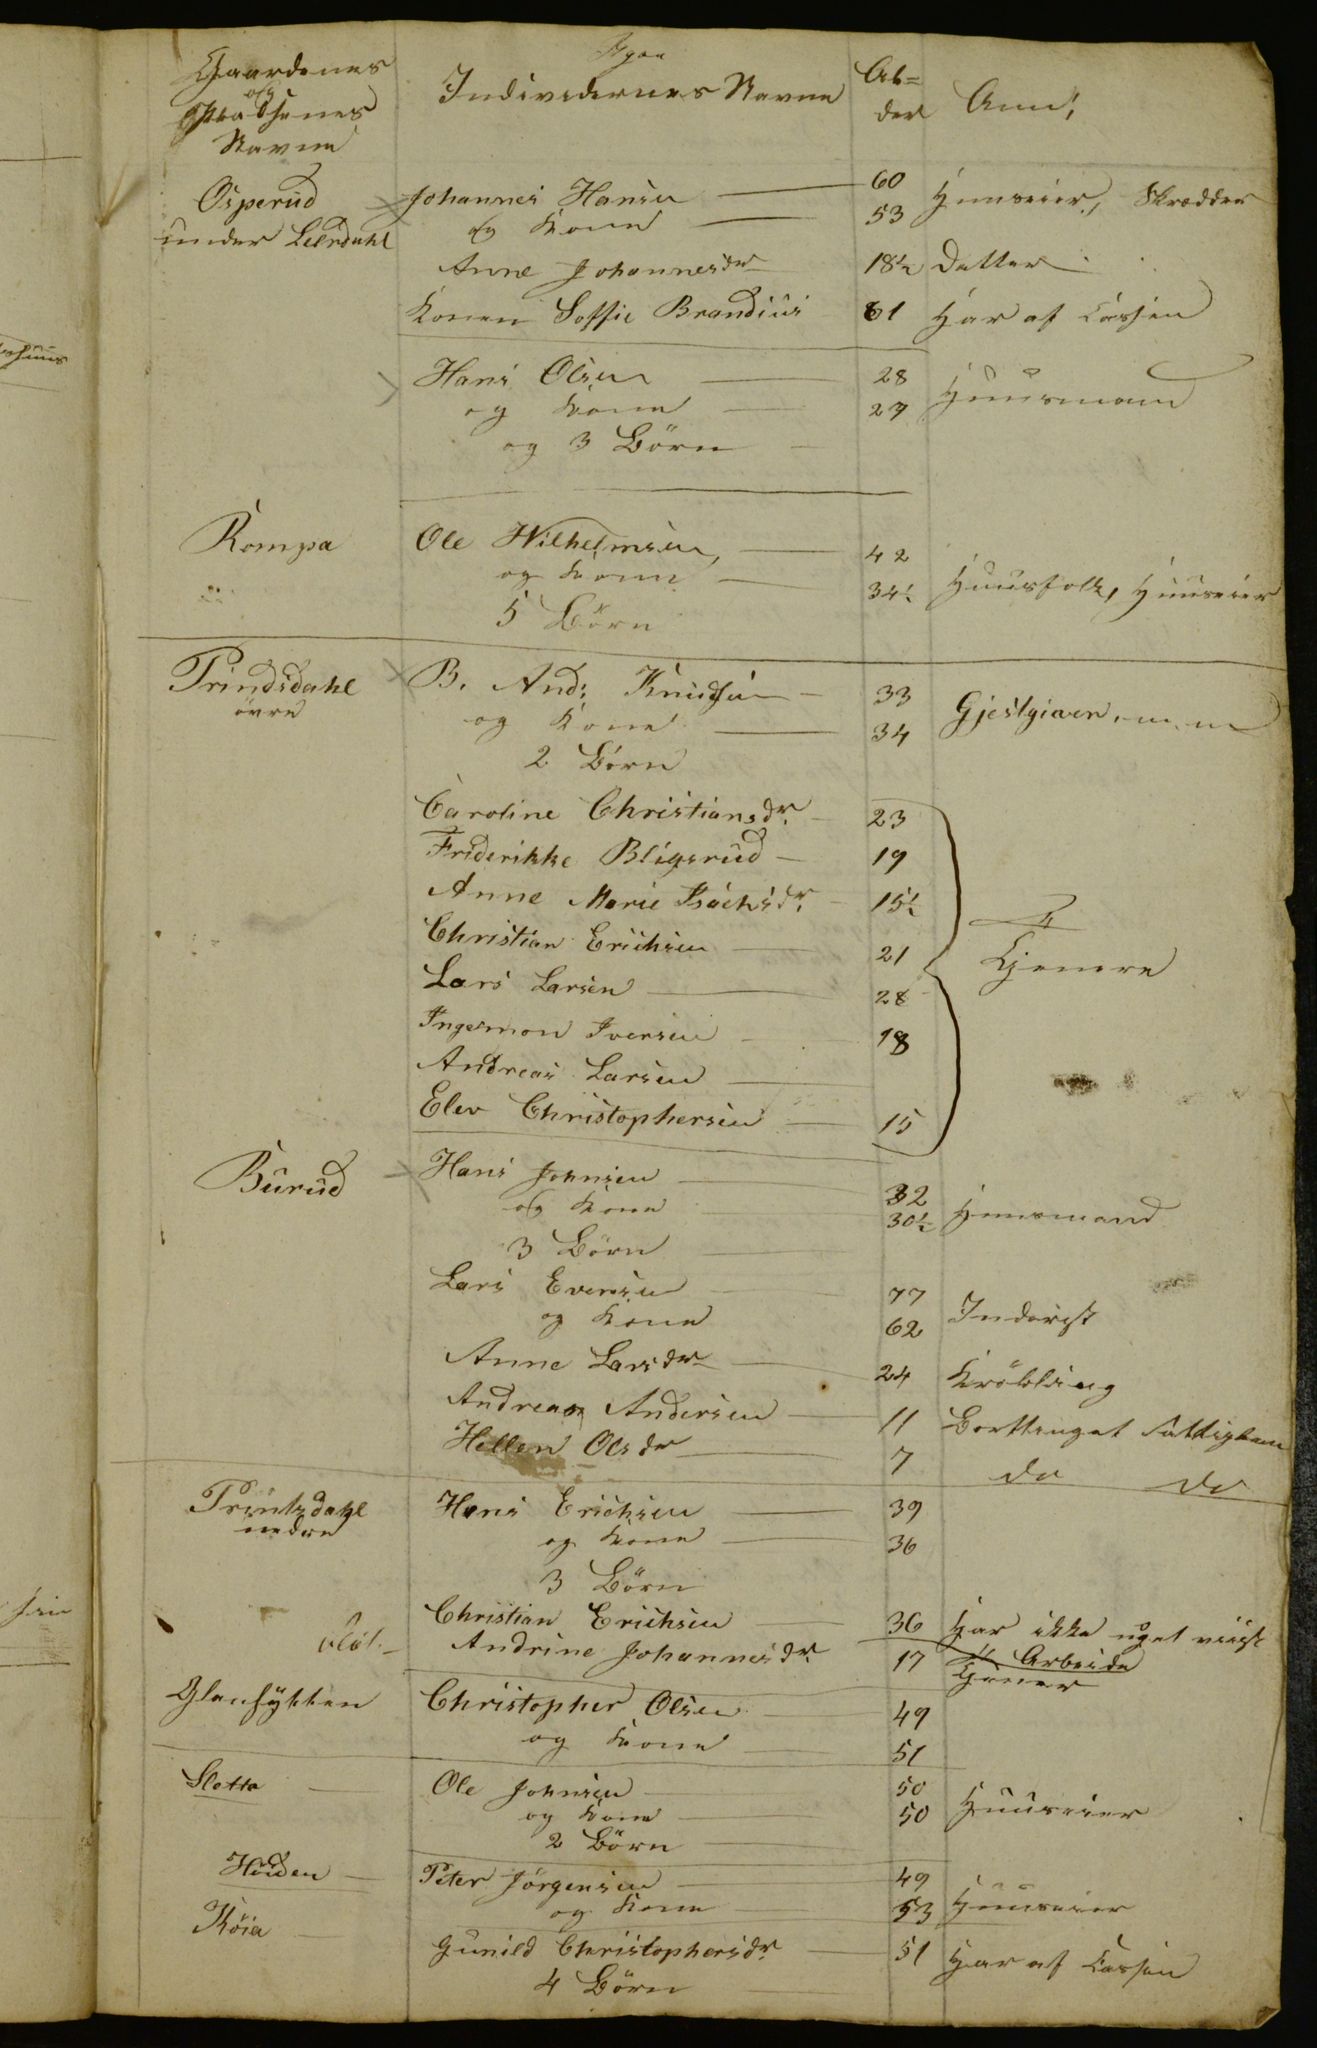 Gaardenes og Pladsenes Navne Individernes Navne Al= der Anm:
Osperud under Leerdahl Johannes Hansen 60 Huuseier, Skrædder
og Kone 53
Anne Johannesdr 18½ datter
Konen Soffie Brandius 61 Har af Cassen
Hans Olsen 28 Huusmand
og Kone 27
og 3 Börn
Rompa Ole Wilhelmsen, 42
og Kone 34½ Huusfolk, Huuseier
5 Börn
Prindsdahl övre B. And: Knudsen 33 Gjestgiver, m. m
og Kone 34
2 Börn
Caroline Christiansdr. 23
Friderikke Bligsrud 19
Anne Marie Isachsdr. 15½
Christian Erichsen 21 Tjenere
Lars Larsen 28
Ingermon Iversen 18
Andreas Larsen
Elev Christophersen 15
Burud Hans Johnsen 32 Huusmand
og Kone 30½
3 Börn
Lars Evensen 77 Inderst
og Kone 62
Anne Larsdr 24 Kröbling
Andreas Andersen 11 Borttinget
Hellen Olsdr 7 do do
Printzdahl nedre Hans Erichsen 39
og Kone 36
3 Börn
Christian Erichsen 36 Har ikke noget viist Arbeide
Andrine Johannesdr. 17 Tjener
Glashytten Christopher Olsen 49
og Kone 51
Sletta Ole Johnsen 50 Huuseier
og Kone 50
2 Börn
Höiden Peter Jörgensen 49 Huuseier
og Kone 53
Röia Gunild Christophersdr. 51 Har af Cassen
4 Börn